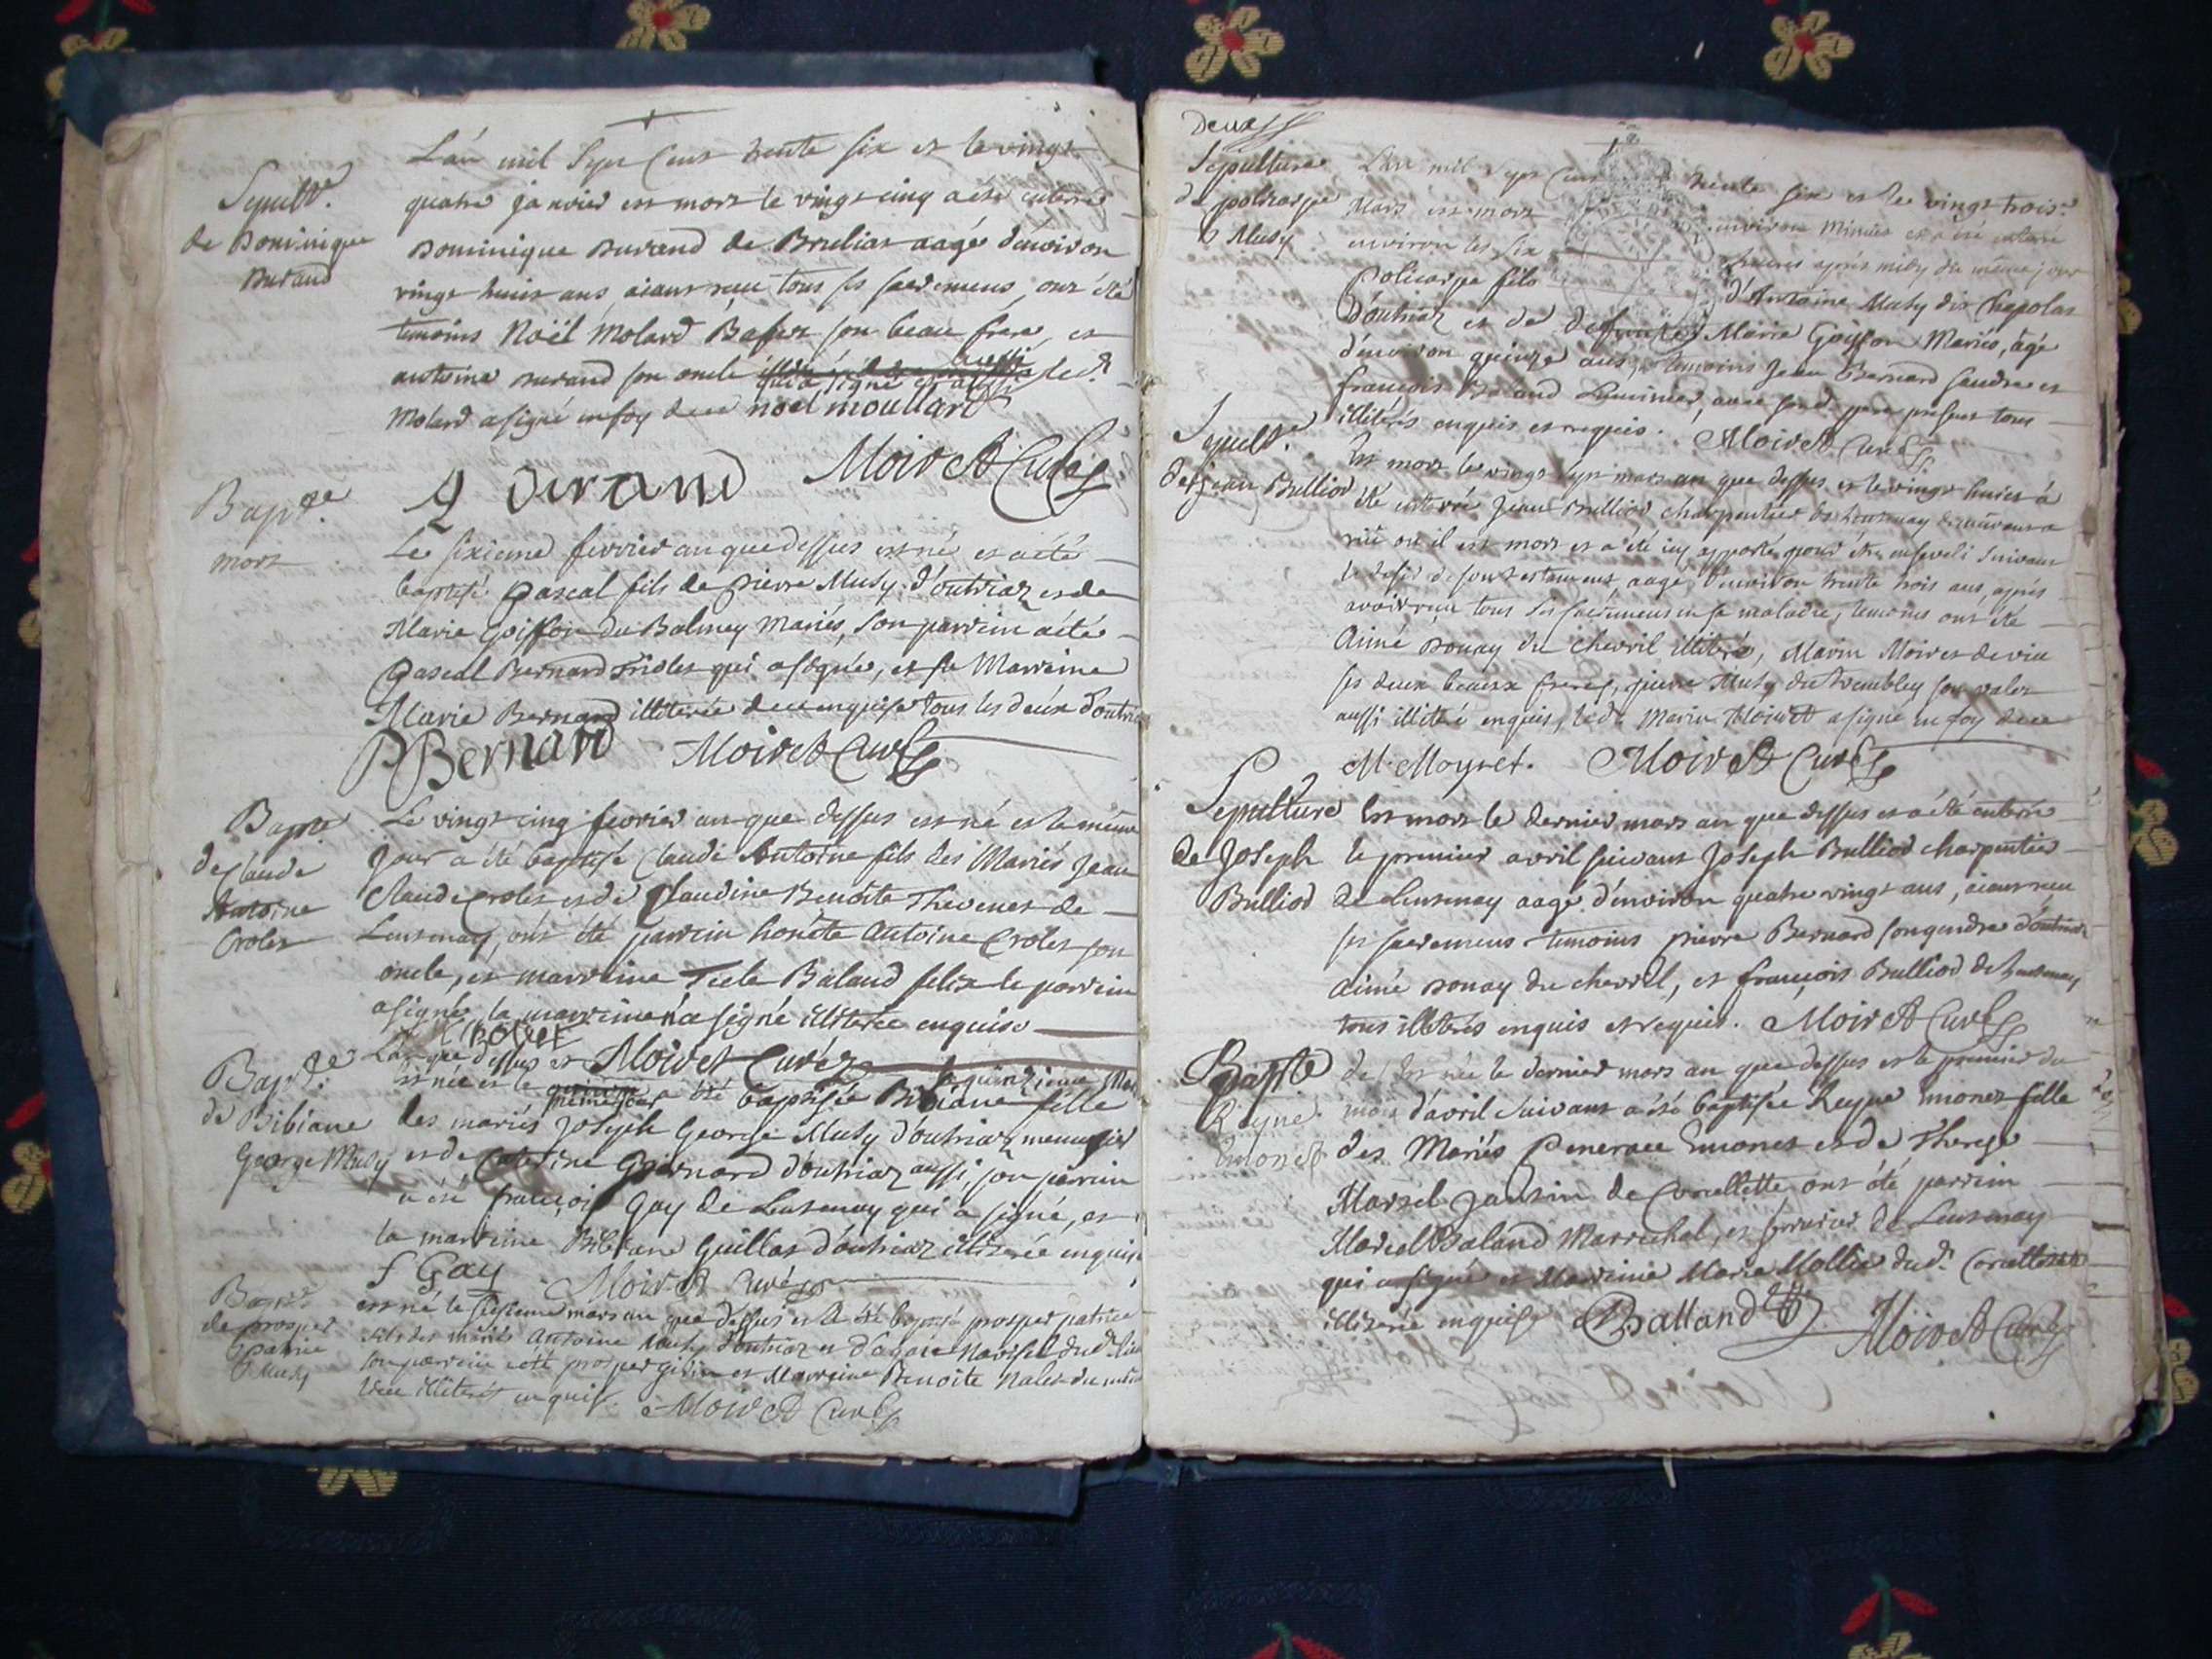 L'an mil sept cens trente six et le vingt
Sepult.re
de Dominique
Durand
quatre janvier est mort le vingt cinq a été enterré
Dominique Durand de Brulias aagé d'environ
vingt huit ans, aiant reçu tous ses sacremens, ont été
temoins Noël Molard Bafet son beau frere, et
antoine Durand son oncle
Molard a signé en foy de ce noel moullard
A Durand Moiret Curé
Bapt.e
mort
Le sixieme fevrier an que dessus est né et a été
baptisé Pascal fils de pierre Musy d'outriaz et de
Marie Goiffon du Balmey Mariés, son parrein a été
Pascal Bernard Triolet qui a signé, et sa Marreine
Marie Bernard illiterée de ce enquise tous les deux d'outriaz
P Bernard Moiret Curé
Bapt.e
de Claude
Antoine
Crolet
Le vingt cinq fevrier an que dessus est né et le même
jour a été baptisé Claude Antoine fils des Mariés Jean
Claude Crolet et de Claudine Benoite Thevenet de
Lentenay, ont été parrein honête Antoine Crolet son
oncle, et marreine Tecle Baland felix le parrein
a signé, la marreine n'a signé illiterée enquise
A Crolet
Moiret Curé
Bapt.e
de Bibiane
George Musy
L'an que dessus et le quinzieme Mars
est née et le même jour a été baptisée Bibiane fille
des mariés Joseph George Musy d'outriaz menuisier
et de Caterine Bernard d'outriaz aussi, son parrein
a été françois Gay de Lentenay qui a signé, et
la marreine Bibiane Guillot d'outriaz illiterée enquise
f Gay Moiret Curé
Bapt.e
de prosper
patrice
Musy
est né le seizieme mars an que dessus et a été baptisé prosper patrice
fils des mariés Antoine Musy d'outriaz et d'agate
son parrein a été prosper et Marreine Benoite
illiterés enquis. Moiret Curé
Deux
Sepulture
de policarpe
Musy
L'an mil sept cens trente six et le vingt trois
Mars est mort environ minuit et a été enterré
environ les six heures après midy du même jour
Policarpe fils d'Antoine Musy dit Chapolas
D'outriaz et de defunte Marie Goiffon Mariés, agé
d'environ quinze ans, temoins Jean Bernard Gendre et
françois Baland Luminier, avec son d. pere present tous
illiterés enquis et requis. Moiret Curé
Sepult.e
de jean Bulliod
Est mort le vingt sept mars an que dessus et le vingt huit a
été enterré Jean Bulliod charpentier de Lentenay demeurant a
viû où il est mort et a été icy apporté pour être enseveli suivant
le desir de son testament, aagé d'environ trente trois ans, après
avoir reçu tous ses sacremens en sa maladie, temoins ont été
Aimé Donay du Chevril illiteré, Marin Moiret de viu
ses deux beaux freres, pierre Musy du trembley son valet
aussi illiteré enquis, le d. Marin Moiret a signé en foy de ce
M. Moyret. Moiret Curé
Sepulture
de Joseph
Bulliod
Est mort le dernier mars an que dessus et a été enterré
le premier avril suivant Joseph Bulliod charpentier
de Lentenay aagé d'environ quatre vingt ans, aiant reçu
ses sacremens temoins pierre Bernard son gendre d'outriaz
Aimé Donay du chevril, et françois Bulliod de Lentenay
tous illiterés enquis et requis. Moiret Curé
Bapt.e
Reyne
Emonet
de / Est née le dernier mars an que dessus et le premier du
mois d'avril suivant a été baptisée Reyne Emonet fille
des Mariés Pencrace Emonet et de Therese
Marsel Jantin de Corcellette ont été parrein
Marcel Baland Marrechal, et serrurier de Lentenay
qui a signé et Marreine Marie Mollie dud. Corcellette
illiterée enquise Balland Moiret Curé